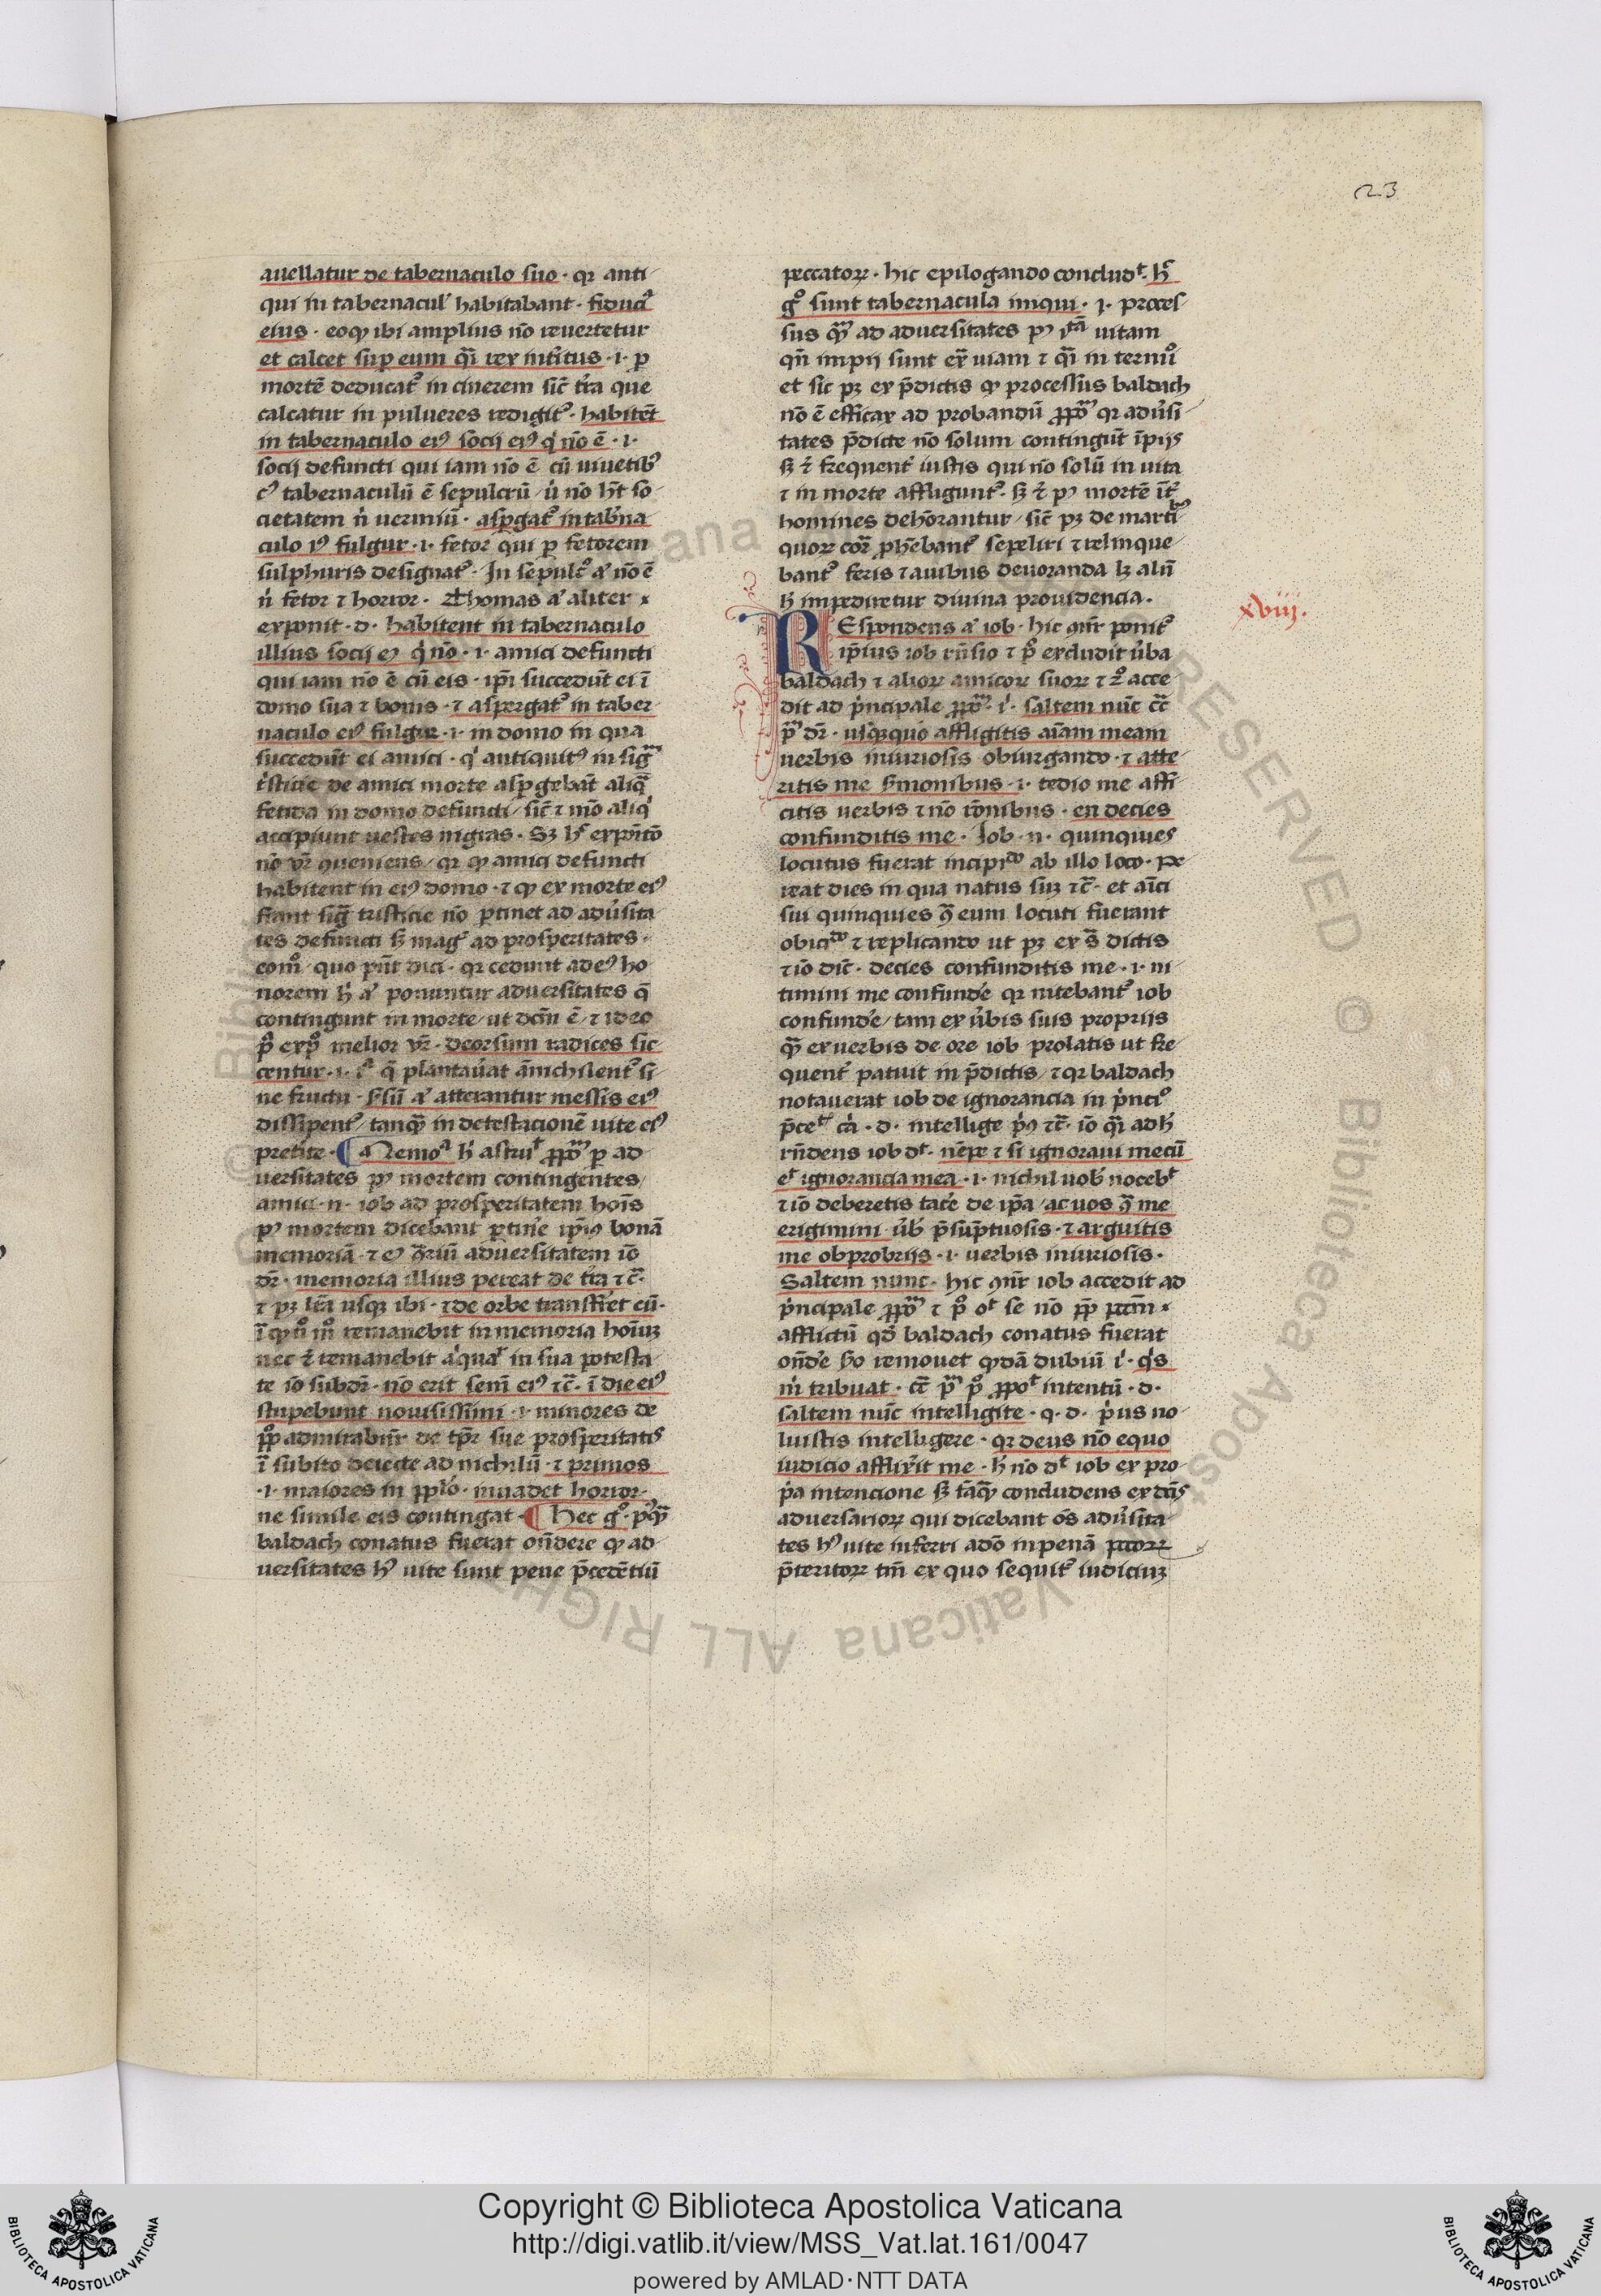 23
auellatur de tabernaculo suo · qꝛ anti
qui in tabernacul' habitabant · fiduci᷑
eius · eoꝙ ibi amplius nō reuertetur
et calcet suꝑ eum q̄i rex int'itus · i · ꝑ
mortē deducat᷑ in cinerem sic̄ t'ra que
calcatur in pulueres redigit᷑ · habitēt
in tabernaculo eiꝰ socij eiꝰ q' nō ē · i ·
socij defuncti qui iam nō ē cū uiuētibꝰ
cꝰ tabernaculū ē sepulcrū / u' nō hn̄t so
cietatem n' uermiū · asꝑgat᷑ in tab'na
culo iꝰ fulgur · i · fetor qui ꝑ fetorem
sulphuris designat᷑ · In sepulc᷑ͦ aͨ nō ē
n' fetor ⁊ horror · Thomas aͨ aliter
exponit · d · habitent in tabernaculo
illius socij eꝰ q' nō · i · amici defuncti
qui iam nō ē cū eis · ip̄i succedūt ei ī
domo sua ⁊ bonis · ⁊ aspergat᷑ in taber
naculo eiꝰ fulgur · i · in domo in qua
succedūt ei amici · q' antiquitꝰ in sigᷓᷓ
t'sticie de amici morte asꝑgebāt aliq̄
fetida in domo defuncti / sic̄ ⁊ mō aliq'
accipiunt uestes nigras · Sꝫ hͨ exp̄itō
nō vr̄ queniens / qꝛ ꝙ amici defuncti
habitent in eiꝰ domo · ⁊ ꝙ ex morte eiꝰ
fiant sigᷓ tristicie nō ꝑtinet ad adu'sita
tes defuncti sꝫ mag᷑ ad prosperitates ·
eom͛ / quo pn̄t dici · qꝛ cedunt ad eꝰ ho
norem h' aͨ ponuntur aduersitates q̄
contingunt in morte / ut dcm̄ ē / ⁊ ideo
pͣ expͦ melior vr̄ · deorsum radices sic
centur · i · iͣ q̄ plantau'at ānichilent᷑ si
ne fructu · Ssū aͨ atterantur messis eiꝰ
dissipent᷑ / tanqᷓ in detestacionē uite eiꝰ
pretite · ¶ Memoͣ h' astruͬ ꝓpōᷓ ꝑ ad
uersitates pꝰ mortem contingentes /
amici · n · iob ad prosperitatem hoīs
pꝰ mortem dicebant ꝑtin'e ip̄iꝰ bonā
memoriā · ⁊ eꝰ q̄riū aduersitatem iō
dr̄ · memoria illius pereat de t'ra ⁊c̄ ·
⁊ pꝫ lr̄a usqꝫ ibi · ⁊ de orbe transf'et eū ·
ī ꝙ nͦ mͦ remanebit in memoria hoīuꝫ
nec ⁊͛ remanebit a'quaͬ in sua potesta
te iō subdr̄ · nō erit sem̄ eiꝰ ⁊c̄ · ī die eiꝰ
stupebunt nouissimi · i · minores de
ꝓp̄ admirabūr de tp̄r sue prosperitatis
ī subito deiecte ad nichilū · ⁊ primos
· i · maiores in ꝓplͦo · inuadet horror ·
ne simile eis contingat · ¶ Hec gͦ · pꝰqᷓ
baldach conatus fuerat on̄dere ꝙ ad
uersitates hꝰ uite sunt pene p̄cedētiū
peccatoꝝ · hic epilogando concludͭ · hͨ
gͦ sunt tabernacula iniqui · i · proces
sus qᷓ ad aduersitates pꝰ iͭā uitam
qn̄ impij sunt ex̄ uiam ⁊ q̄i in ternıͦ
et sic pꝫ ex p̄dictis ꝙ processus baldach
nō ē efficax ad probandū ꝓpōᷓ qꝛ adu'si
tates p̄dicte nō solum contingūt īpijs
sꝫ ⁊͛ frequent' iustis qui nō solū in uita
⁊ in morte affligunt᷑ · sꝫ ⁊͛ pꝰ mortē īt᷑
homines dehōrantur / sic̄ pꝫ de martiᵇꝰ
quoꝝ coꝛ̄ ph̄ebant᷑ sepeliri ⁊ relinque
bant᷑ feris ⁊ auibus deuoranda lꝫ aliī
h' impediretur diuina prouidencia ·
xviij ·
REspondens aͨ iob · hic ꝯn̄r ponit᷑
ip̄ius iob rn̄sio ⁊ pͦ excludit u'ba
baldach ⁊ alioꝝ amicoꝝ suoꝝ ⁊ 2ͦ acce
dit ad p'ncipale ꝓpōᷓ · i' · saltem nūc c̄c̄
pᷓ dr̄ · usqꝫquo affligitis aīam meam
uerbis iniuriosis obiurgando · ⁊ atte
ritis me s'monibus · i · tedio me affi
citis uerbis ⁊ nō rōnibus · en decies
confunditis me · Iob · n · quinquies
locutus fuerat incipiͩᵒ ab illo loco · pe
reat dies in qua natus suꝫ ⁊c̄ · et aīci
sui quinquies q̄ eum locuti fuerant
obiciͩᵒ ⁊ replicando ut pꝫ ex s̄ dictis
⁊ iō dic̄ · decies confunditis me · i · ni
timini me confund'e qꝛ nitebant᷑ iob
confund'e / tam ex u'bis suis proprijs
qᷓ ex uerbis de ore iob prolatis ut fre
quent' patuit in p̄dictis / ⁊ qꝛ baldach
notauerat iob de ignorancia in p'nciͦ
p̄ceᵗⁱˢ ca' · d · intellige p'ꝰ ⁊c̄ · iō q̄i ad h'
rn̄dens iob dͭ · nēpe ⁊ si ignoraui mecū
eͬ ignorancia mea · i · nichil uob' nocebͭ
⁊ iō deberetis tac'e de ip̄a / ac uos q̄ me
erigimini u'b' p̄sūptuosis · ⁊ arguitis
me obprobrijs · i · uerbis iniuriosis ·
Saltem nunc · hic ꝯn̄r iob accedit ad
p'ncipale ꝓpōᷓ ⁊ pͦ oͭ se nō ꝓp̄ pc̄tm̄
afflictū qd̓ baldach conatus fuerat
on̄d'e s̓o remouet q̓dā dubiū i' · q's
m' tribuat · c̄c̄ pᷓ pͦ ꝓpoͭ intentū · d ·
saltem nūc intelligite · q · d · p'us no
luistis intelligere · qꝛ deus nō equo
iudicio afflix'it me · h' nō dͭ iob ex pro
p'a intencione sꝫ tāqᷓ concludens ex dc̄is
aduersarioꝝ qui dicebant ōs adu'sita
tes hꝰ uite inferri adō in penā pc̄toꝝ
p̄teritoꝝ tm̄ ex quo sequit᷑ iudiciuꝫ
Copyright © Biblioteca Apostolica Vaticana
http://digi.vatlib.it/view/MSS_Vat.lat.161/0047
powered by AMLAD·NTT DATA